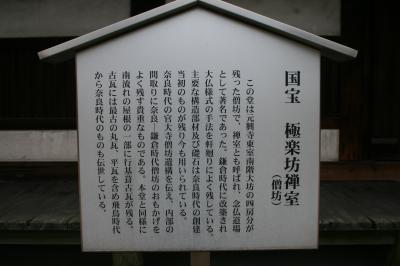 国宝 極楽坊禅室
（僧坊）
この堂は元興寺東室南階大坊の四房分が
残った僧坊で、禅室とも呼ばれ、念仏道場
として著名であった。鎌倉時代に改築され
大仏様式の手法を軒廻りによく残している。
主要な構造部材及び礎石は奈良時代の創建
当初のものが残り今も用いられている。
奈良時代の官大寺僧坊遺構を伝え、内部の
間取りに奈良―鎌倉時代僧坊のおもかげを
よく残す貴重なものである。本堂と同様に
南流れの屋根の一部に行基葺古瓦が残る。
古瓦には最古の丸瓦、平瓦を含め飛鳥時代
から奈良時代のものも伝世している。